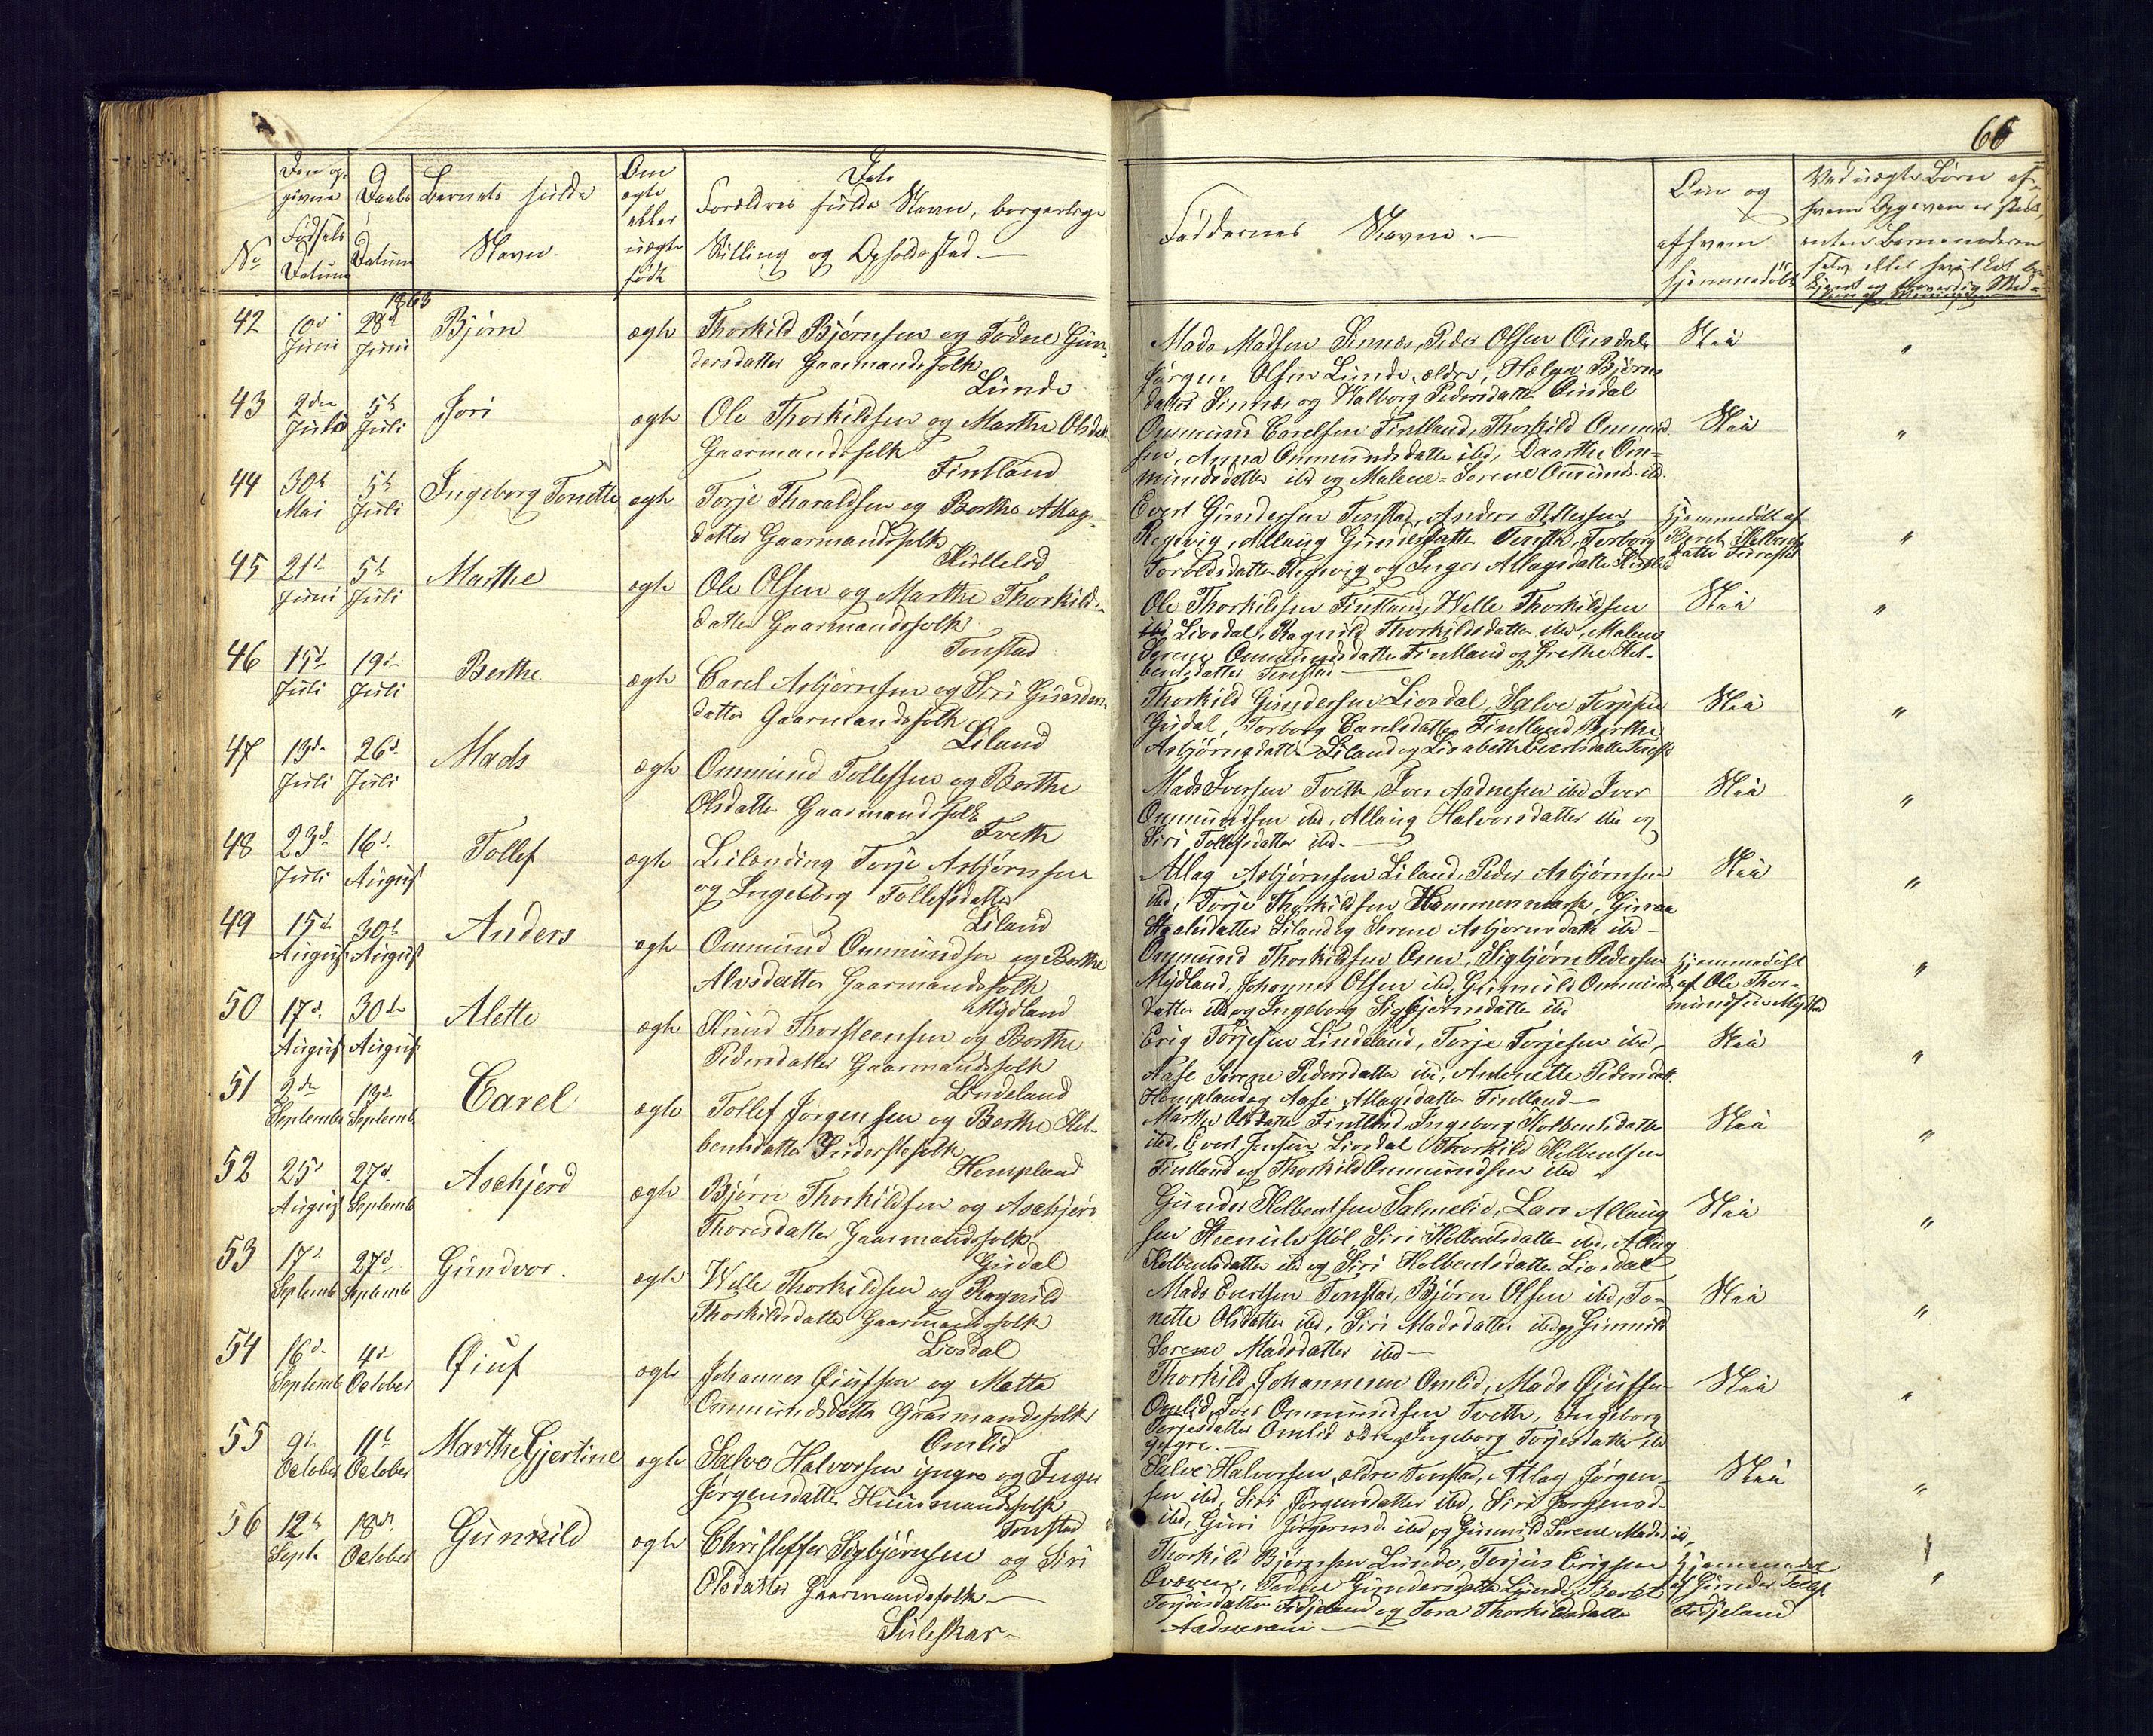 66
No
Den op-
givne
Fødsels
Datum
Daabs
Datum
Barnets fulde
Navn.
Om
ægte
eller
uægte
født
Dets
Forældres fulde Navn, borgerlige
Stilling og Opholdssted.—
Faddernes Navne.—
Om og
af hvem
hjemmedøbt
Ved uægte Børn af
hvem Opgiven er skeet,
enten Barnemoderen
selv eller hvilket be-
1863
42
10d
Juni
28d
Juni
Bjørn
ægte
Thorkild Bjørnsen og Todne Gun-
dersdatter Gaarmandsfolk
Lunde
Mads Madsen Sinnes, Peder Olsen Ousdal
Jørgen Olsen Lunde ældre, Helga Bjørns
datter Sinnes og Walborg Pedersdatter Ousdal
Nei
"
43
2den
Juli
5t
Juli
Jori
ægte
Ole Thorkildsen og Marthe Olsdatt.
Gaarmandsfolk
Fintland
Ommund Carelsen Fintland, Thorkild Ommund-
sen, Anna Ommundsdatter ibd, Daarthe Om-
mundsdatter ibd og Malene Serene Ommunds. ibd.
Nei
"
44
30t
Mai
5t
Juli
Ingeborg Tonette
ægte
Torje Tharaldsen og Berthe Atlag-
datter Gaarmandsfolk
Evert Gundersen Tonstad, Anders Pettersen
Regevig, Allaug Gundersdatter Tonstd, Torborg
Toroldsdatter Regevig og Inger Atlagsdatter
Hjemmedøbt af
"
45
21d
Juni
5t
Juli
Marthe
ægte
Ole Olsen og Marthe Thorkilds-
datter Gaarmandsfolk
Tonstad
Ole Thorkildsen Fintland, Welle Thorkildsen
Liosdal, Ragnild Thorkildsdatter ibd, Malene
Serene Ommundsdatter Fintland og Grethe Hel-
bentsdatter Tonstad
Nei
"
46
15d
Juli
19d
Juli
Berthe
ægte
Carel Asbjørnsen og Siri Gunders-
datter Gaarmandsfolk
Liland
Thorkild Gundersen Liosdal, Salve Torjesen
Gusdal, Torborg Carelsdatter Fintland, Berthe
Asbjørnsdatter Liland og Lisabeth Evertsdatter Tonst.
Nei
"
47
13d
Juli
26d
Juli
Mads
ægte
Ommund Tollefsen og Berthe
Olsdatter Gaarmandsfolk
Tveth
Mads Iversen Tveth, Iver Aadnesen ibd Iver
Ommundsen ibd, Allaug Halvorsdatter ibd og
Siri Tollefsdatter ibd.
Nei
"
48
23d
Juli
16d
August
Tollef
ægte
Leilænding Torje Asbjørnsen
og Ingeborg Tollefsdatter
Liland
Atlag Asbjørnsen Liland, Peder Asbjørnsen
ibd, Torje Thorkildsen Hammermark,
Liland og Serene Asbjørnsdatter ibd
Nei
"
49
15d
August
30t
August
Anders
ægte
Ommund Ommundsen og Berthe
Alvsdatter Gaarmandsfolk
Mydland
Ommund Thorkildsen Osen, Sigbjørn Pedersen
Mydland, Johannes Olsen ibd, Gunnild Ommund-
datter ibd og Ingeborg Sigbjørnsdatter ibd
Hjemmedøbt
af Ole Thor-
mundsen Mydland
"
50
17d
August
30te
August
Alette
ægte
Knud Thorsteensen og Berthe
Pedersdatter Gaarmandsfolk
Lindeland
Erig Torjesen Lindeland, Torje Torjesen ibd,
Aase Serene Pedersdatter ibd, Antonette Pedersdatt.
Hompland og Aase Atlagsdatter Fintland
Nei
"
51
2de
Septembr
13d
Septembr
Carel
ægte
Tollef Jørgensen og Berthe Hel-
bentsdatter Inderstefolk
Hompland
Marthe Olsdatter Fintland, Ingeborg Holbentsdatter
ibd, Evert Jensen Liosdal Thorkild Helbentsen
Fintland og Thorkild Ommundsen ibd
Nei
"
52
25d
August
27d
Septembr
Aschjerd
ægte
Bjørn Thorkildsen og Aschjerd
Thoresdatter Gaarmandsfolk
Gusdal
Gunder Holbentsen Salmelid, Lars Allaug
sen, Siri Holbentsdatter ibd, Allaug
Holbentsdatter ibd og Siri Holbentsdatter Liosdal
Nei
"
53
17d
Septembr
27d
Septembr
Gundvor.
ægte
Welle Thorkildsen og Ragnild
Thorkildsdatter Gaarmandsfolk
Liosdal
Mads Evertsen Tonstad, Bjørn Olsen ibd, To-
nette Olsdatter ibd, Siri Madsdatter ibd og Gunnild
Serene Madsdatter ibd
Nei
"
54
16d
Septembr
4d
October
Øiuf
ægte
Johannes Øiufsen og Metta
Ommundsdatter Gaarmandsfolk
Omlid
Thorkild Johannesen Omlid, Mads Øiufsen
Omlid, Iver Ommundsen Tveth, Ingeborg
Torjesdatter Omlid ældre, Ingeborg Torjesdatter ibd
yngre.
Nei
"
55
9d
October
11t
October
Marthe Gjertine
ægte
Salve Halvorsen yngre og Inger
Jørgensdatter Huusmandsfolk
Tonstad
Salve Halvorsen ældre Tonstad, Atlag Jørgen-
sen ibd, Siri Jørgensdatter ibd, Siri Jørgensd.
ibd, Guri Jørgensd. ibd og Gunnild Serene Madsd. ibd,
Nei
"
56
12t
Sept.
18de
October
Gunnild
ægte
Christoffer Sigbjørnsen og Siri
Olsdatter Gaarmandsfolk—
Suleskar
Thorkild Bjørnsen Lunde, Torjus Erigsen
Kvæven, Todne Gundersdatter Lunde, Berthe
Torjusdatter Fidjeland og Tora Thorkildsdatter
Aadneram
Hjemmedøbt
af Gunder Tollefs.
Fidjeland
"